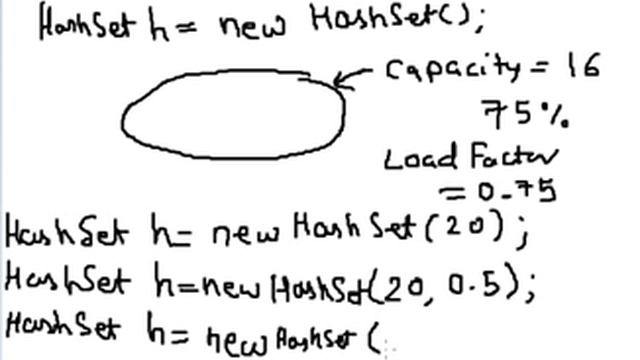 HashSet h = new HashSet();
Capacity = 16
75%
Load Factor
= 0.75
HashSet h = new HashSet(20);
HashSet h = new HashSet(20, 0.5);
HashSet h = new HashSet(